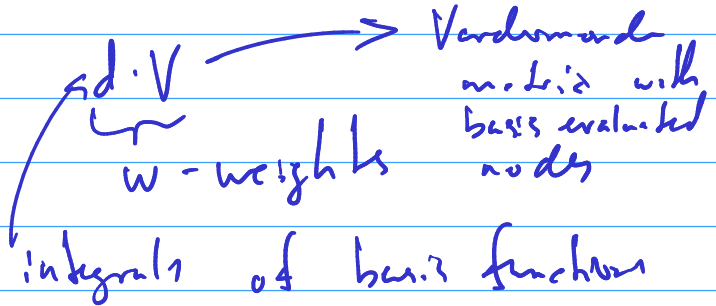 d · V
Vandermonde
matrix with
basis evaluated
nodes
w - weights
integrals of basis functions